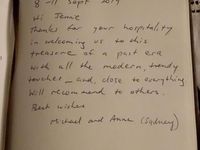 8 - 11 Sept 2019
Hi Jamie
Thanks for your hospitality
in welcoming us to this
treasure of a past era
with all the modern trendy
touches _ and, close to everything
Will recommend to others.
Best wishes
Michael and Anne (Sydney)